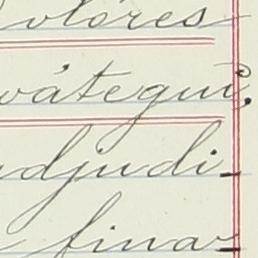 olores
vátegui,
djudi-
fina-